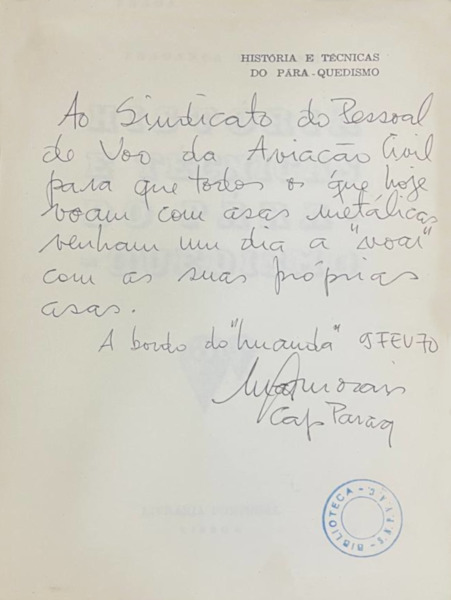 HISTÓRIA E TÉCNICAS
DO PÁRA-QUEDISMO
Ao Sindicato do Pessoal
de Voo da Aviação Civil
para que todos os que hoje
voam com asas metálicas
venham um dia a "voar"
com as suas próprias
asas.
A bordo do "Luanda" 9 FEV 70
Cap Paraq
BIBLIOTECA